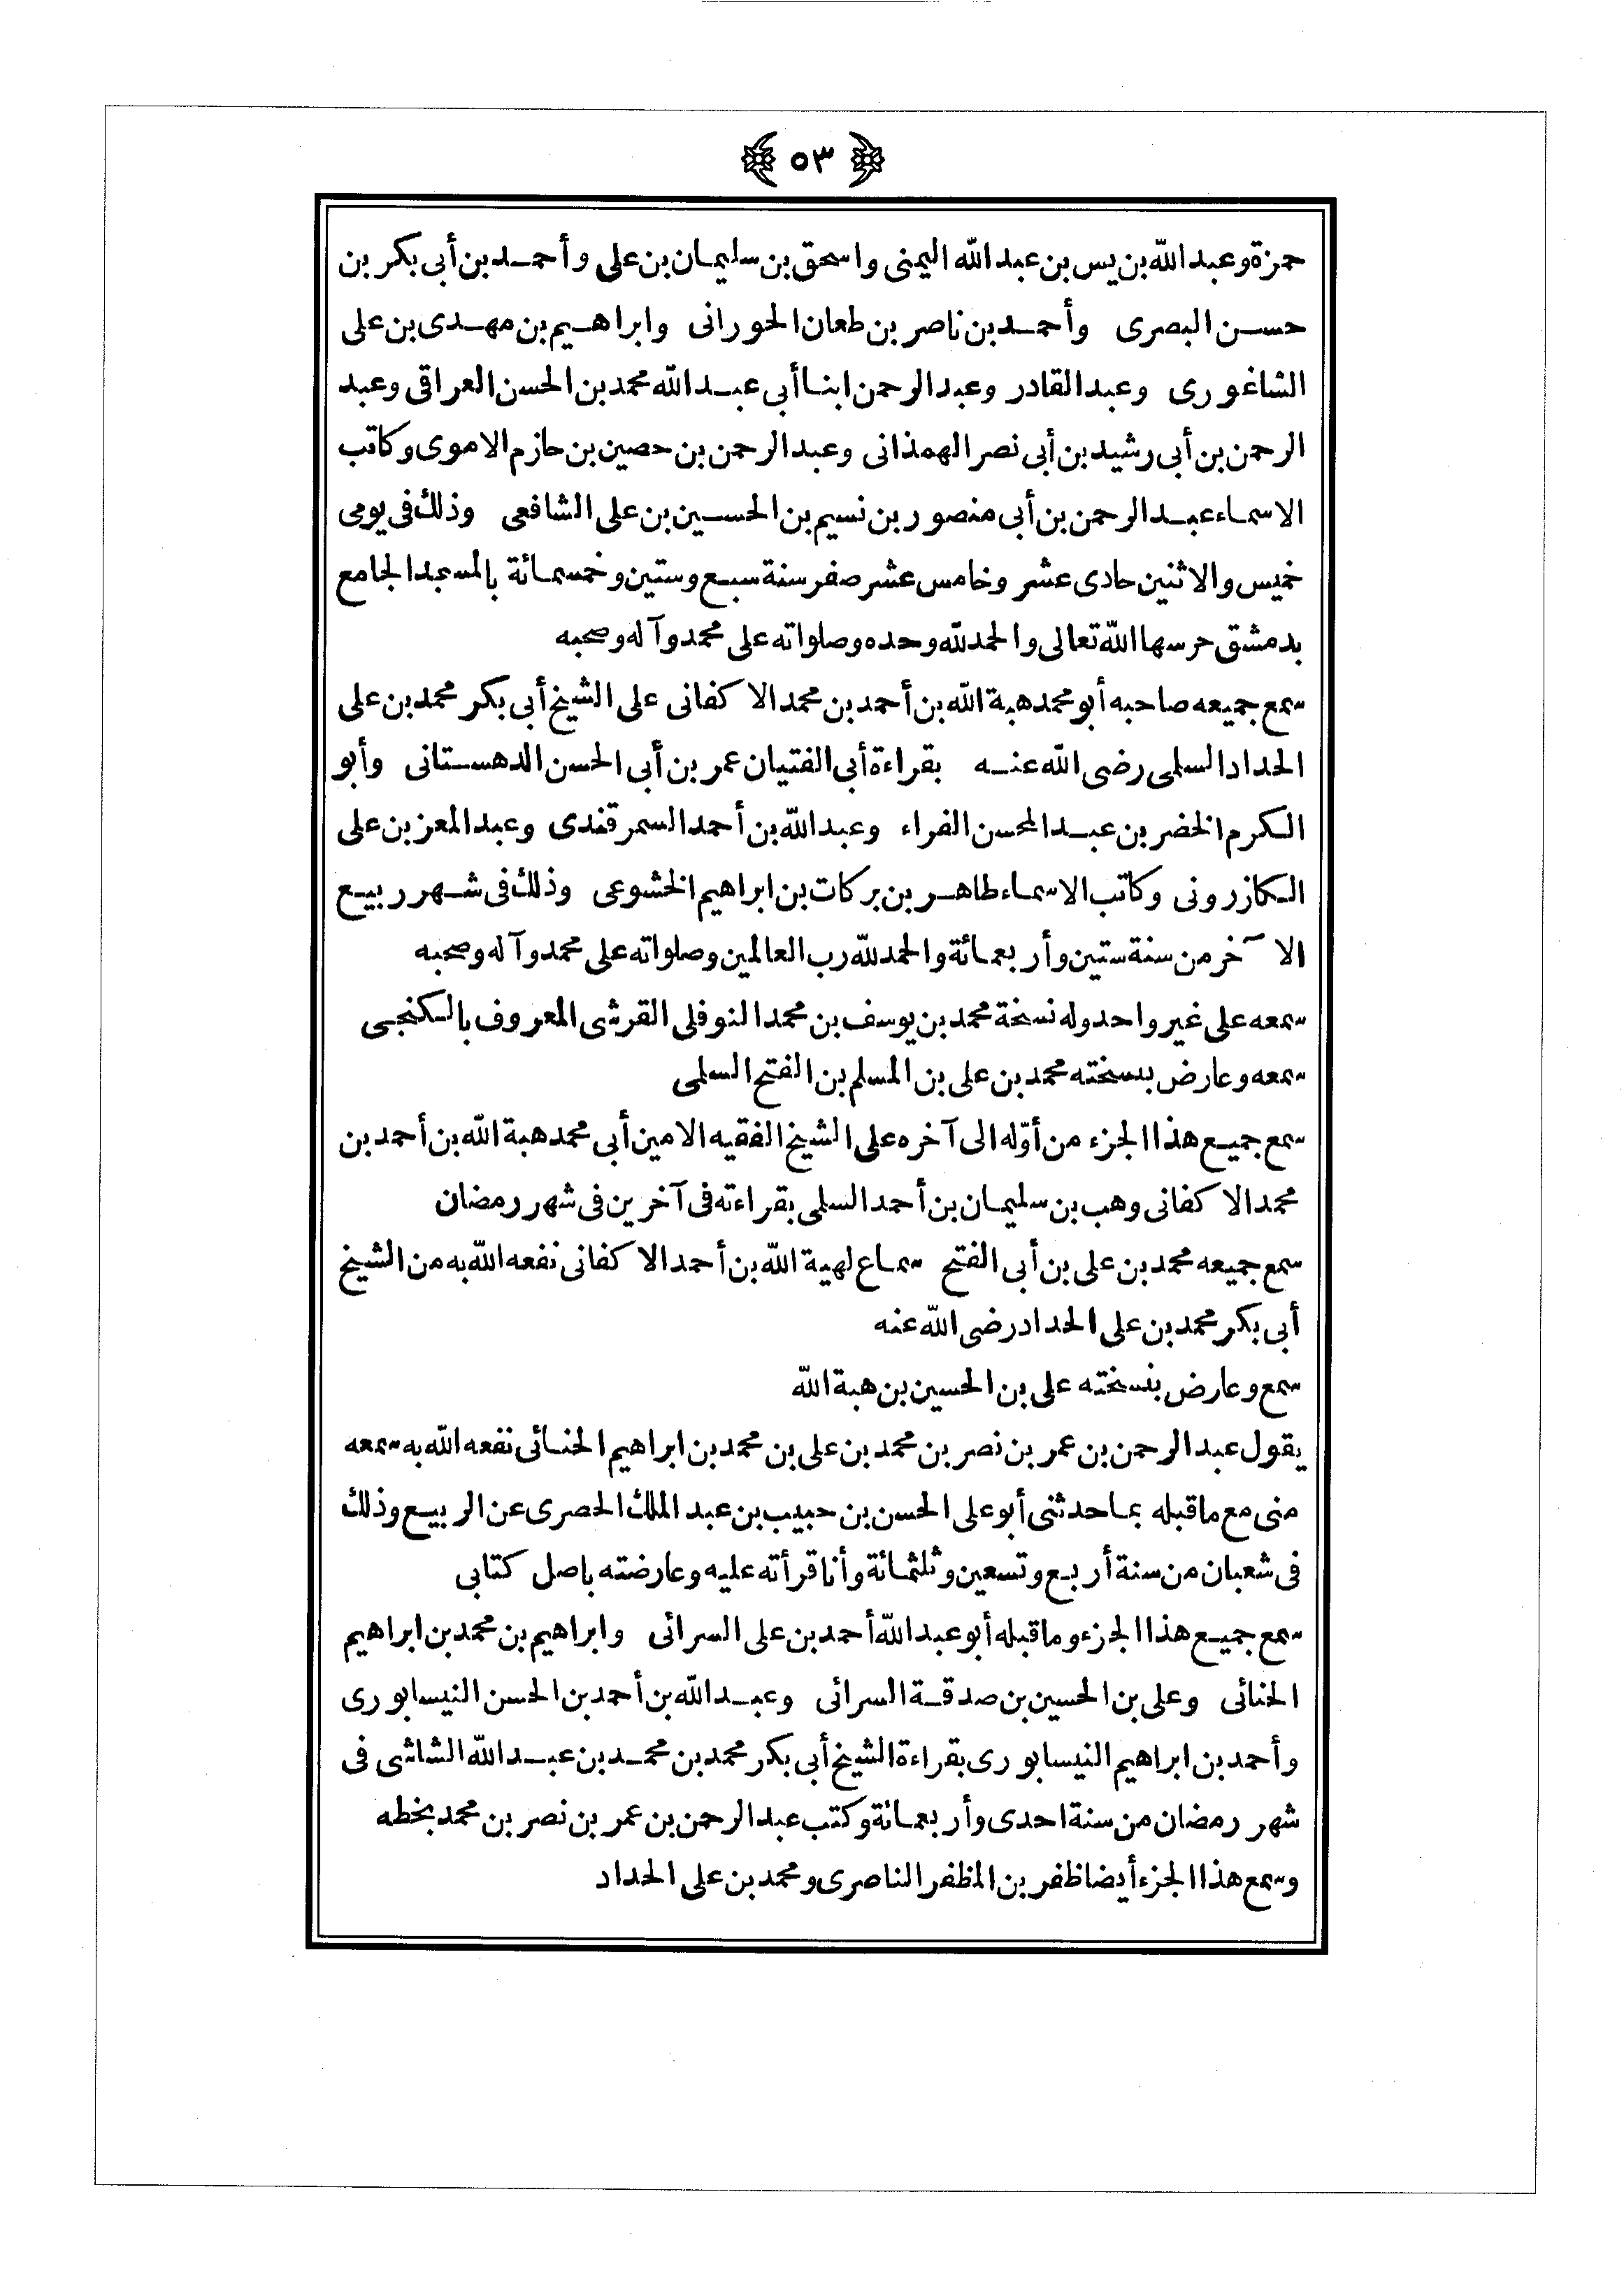 ﴿ ٥٣ ﴾
حمزة وعبد الله بن يس بن عبد الله اليمنى واسحق بن سليمان بن على وأحمد بن أبى بكر بن
حسن البصرى وأحمد بن ناصر بن طعان الحورانى وابراهيم بن مهدى بن على
الشاغورى وعبد القادر وعبد الرحمن ابنا أبى عبد الله محمد بن الحسن العراقى وعبد
الرحمن بن أبى رشيد بن أبى نصر الهمذانى وعبد الرحمن بن حصين بن حازم الاموى وكاتب
الاسماء عبد الرحمن بن أبى منصور بن نسيم بن الحسين بن على الشافعى وذلك فى يومى
خميس والاثنين حادى عشر وخامس عشر صفر سنة سبع وستين وخمسمائة بالمسجد الجامع
بدمشق حرسها الله تعالى والحمد لله وحده وصلواته على محمد وآله وصحبه
سمع جميعه صاحبه أبو محمد هبة الله بن أحمد بن محمد الاكفانى على الشيخ أبى بكر محمد بن على
الحداد السلمى رضى الله عنه بقراءة أبى الفتيان عمر بن أبى الحسن الدهستانى وأبو
الكرم الخضر بن عبد المحسن الفراء وعبد الله بن أحمد السمرقندى وعبد المعز بن على
الكازرونى وكاتب الاسماء طاهر بن بركات بن ابراهيم الخشوعى وذلك فى شهر ربيع
الآخر من سنة ستين وأربعمائة والحمد لله رب العالمين وصلواته على محمد وآله وصحبه
سمعه على غير واحد وله نسخة محمد بن يوسف بن محمد النوفلى القرشى المعروف بالكنجى
سمعه وعارض بنسخته محمد بن على بن المسلم بن الفتح السلمى
سمع جميع هذا الجزء من أوّله الى آخره على الشيخ الفقيه الامين أبى محمد هبة الله بن أحمد بن
محمد الاكفانى وهب بن سليمان بن أحمد السلمى بقراءته فى آخرين فى شهر رمضان
سمع جميعه محمد بن على بن أبى الفتح سماع لهبة الله بن أحمد الاكفانى نفعه الله به من الشيخ
أبى بكر محمد بن على الحداد رضى الله عنه
سمع وعارض بنسخته على بن الحسين بن هبة الله
يقول عبد الرحمن بن عمر بن نصر بن محمد بن على بن محمد بن ابراهيم الحنائى نفعه الله به سمعه
منى مع ما قبله بما حدثنى أبو على الحسن بن حبيب بن عبد الملك الحصرى عن الربيع وذلك
فى شعبان من سنة أربع وتسعين وثلثمائة وأنا قرأته عليه وعارضته باصل كتابى
سمع جميع هذا الجزء وما قبله أبو عبد الله أحمد بن على السرائى وابراهيم بن محمد بن ابراهيم
الحنائى وعلى بن الحسين بن صدقة السرائى وعبد الله بن أحمد بن الحسن النيسابورى
وأحمد بن ابراهيم النيسابورى بقراءة الشيخ أبى بكر محمد بن محمد بن عبد الله الشاشى فى
شهر رمضان من سنة احدى وأربعمائة وكتب عبد الرحمن بن عمر بن نصر بن محمد بخطه
وسمع هذا الجزء أيضا ظفر بن المظفر الناصرى ومحمد بن على الحداد